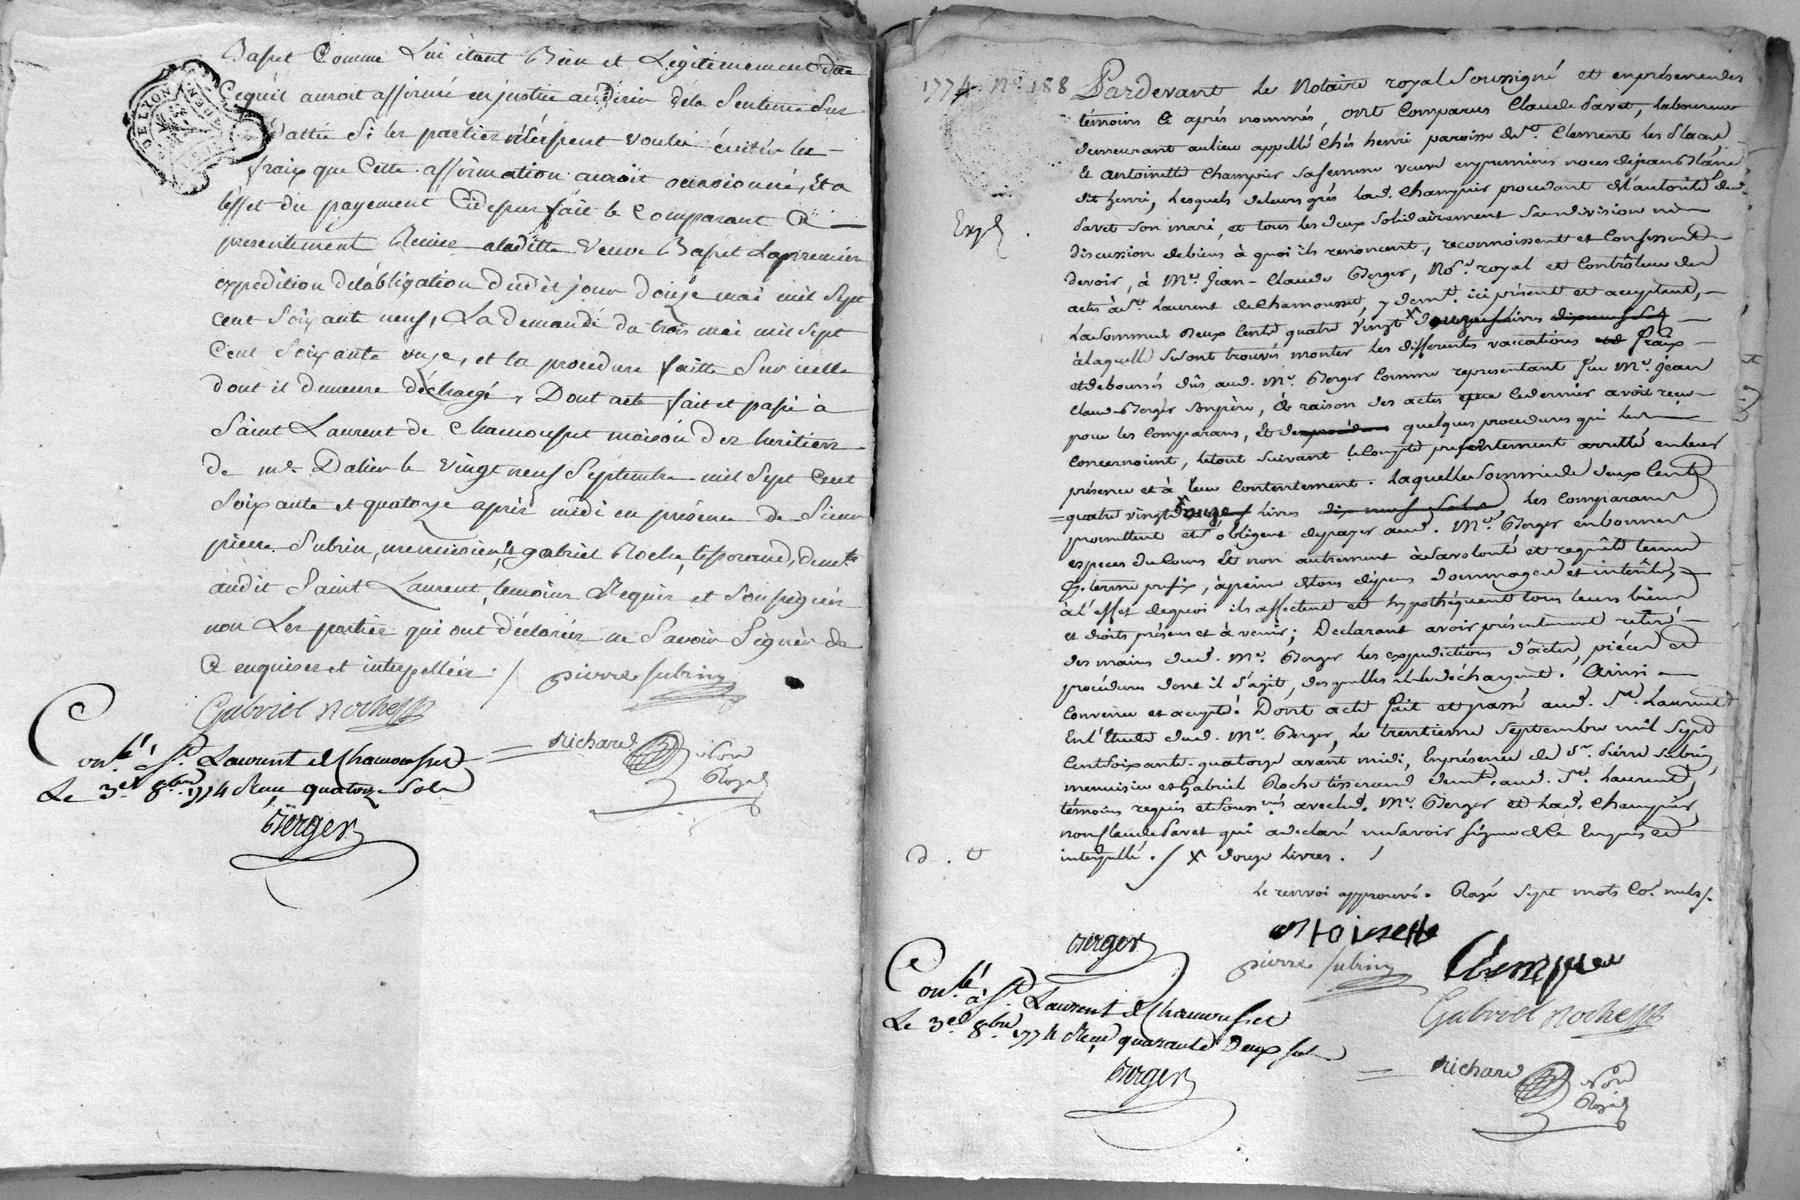 Basset Comme Lui étant Bien et Légitimement due
Cequil auroit affirmé enjustice audesir dela Sentence Sus
Dattée Si les parties n'eussent voulu éviter les
fraix que Cette affirmation auroit occasionné, Et a
l'effet du payement Cidessus fait le Comparant a
presentement Remis aladitte Veuve Basset Lapremière
expedition delobligation dudit jour douze mai mil Sept
Cent Soixante neuf, La demande du trois mai mil Sept
Cent Soixante onze, et la procedure faitte Sur icelle
dont il demeure déchargé, Dont acte fait et passé à
Saint Laurent de Chamousset maison des heritiers
de me. Dalien le vingt neuf Septembre mil Sept Cent
Soixante et quatorze après midi en présence de Sieur
pierre Subrin, menuisier, & gabriel Roche, tisserand, demts.
audit Saint Laurent, temoins Requis et Soussignés
non Les parties qui ont déclarées ne Savoir Signer de
Ce enquises et interpellées. /
pierre subrin
Gabriel Roche
Contlé. à St. Laurent de Chamousset
Le 3e. 8bre 1774 Reçu quatorze Sols
Berger
Richard
Nore
Royal
DE LYON
1774 N°. 188
Pardevant Le Notaire royal Soussigné et enprésence des
témoins Ci après nommés, ont Comparus Claude Savet, Laboureur
demeurant aulieu appellé Chés henri paroisse de St. Clement les places
& antoinette Champier safemme veuve enpremières noces dejean
dit henri, Lesquels deleurs grés Lad. Champier procedant del'autorité dud.
Savet son mari, et tous les deux Solidairement Sans division ni
discussion debiens à quoi ils renoncent, reconnoissent et Confessent
devoir, à Me. Jean-Claude Berger, Nore. royal et Contrôleur des
actes à St. Laurent de Chamousset, y demt. ici présent et acceptant,
La Somme de Deux Cents quatre vingt Livres dix neuf Sols
à laquelle se sont trouvés monter les differentes vaccations fraix
et deboursés dûs aud. Me. Berger Comme representant feu Me. Jean
Claude Berger Son père, à raison des actes que Ce dernier avoit reçu
pour les Comparans, et de quelques procedures qui les
Concernoient, letout suivant le Compte presentement arretté en leur
présence et à leur Contentement. Laquelle Somme de deux Cents
quatre vingt douze Livres dix neuf Sols Les Comparans
promettent et s'obligent depayer aud. Me. Berger en bonnes
especes du Cours Et non autrement à sa volonté et requête terme
& terme prefix, à peine de tous dépens dommages et intérêts,
à l'effet de quoi ils affectent et hypothéquent tous leurs biens
et droits présens et à venir; Declarant avoir présentement retiré
des mains dud. Me. Berger les expeditions d'actes, pièces et
procédures dont il s'agit, desquelles ils le déchargent. Ainsi
Convenu et accepté. Dont acte fait et passé aud. St. Laurent
En l'Etude dud. Me. Berger, Le trentieme Septembre mil Sept
Cent Soixante quatorze avant midi, En présence de Sr. Pierre Subrin,
menuisier et Gabriel Roche tisserand demts. aud. St. Laurent,
témoins requis et Sousnés avec led. Me. Berger et Lad. Champier,
non Claude Savet qui a declaré ne Savoir signer de Ce Enquis et
interpellé. / x douze Livres. /
Le renvoi approuvé. Rayé Sept mots Co. nuls.
Berger
Antoinette
Champier
pierre subrin
Gabriel Roche
Contlé. à St. Laurent de Chamousset
Le 3e. 8bre 1774 Reçu quarante Deux sols
Berger
Richard
Nore
Royal